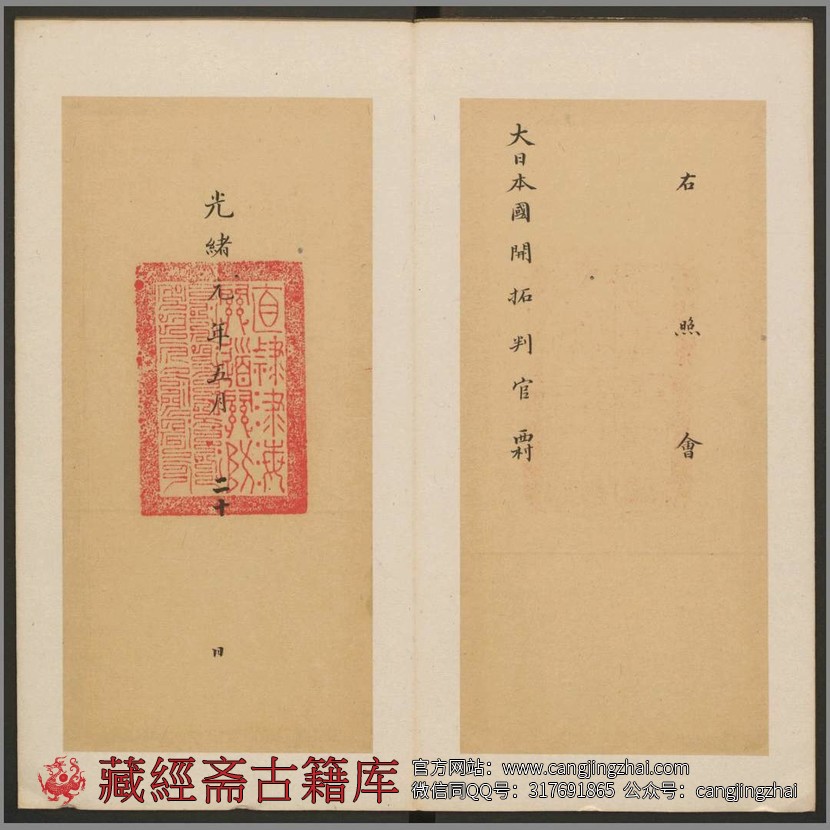 右照會
大日本國開拓判官西村
光緒元年五月二十日
直隸津海
關道關防
藏經斋古籍库
官方网站：www.cangjingzhai.com
微信同QQ号：317691865 公众号：cangjingzhai